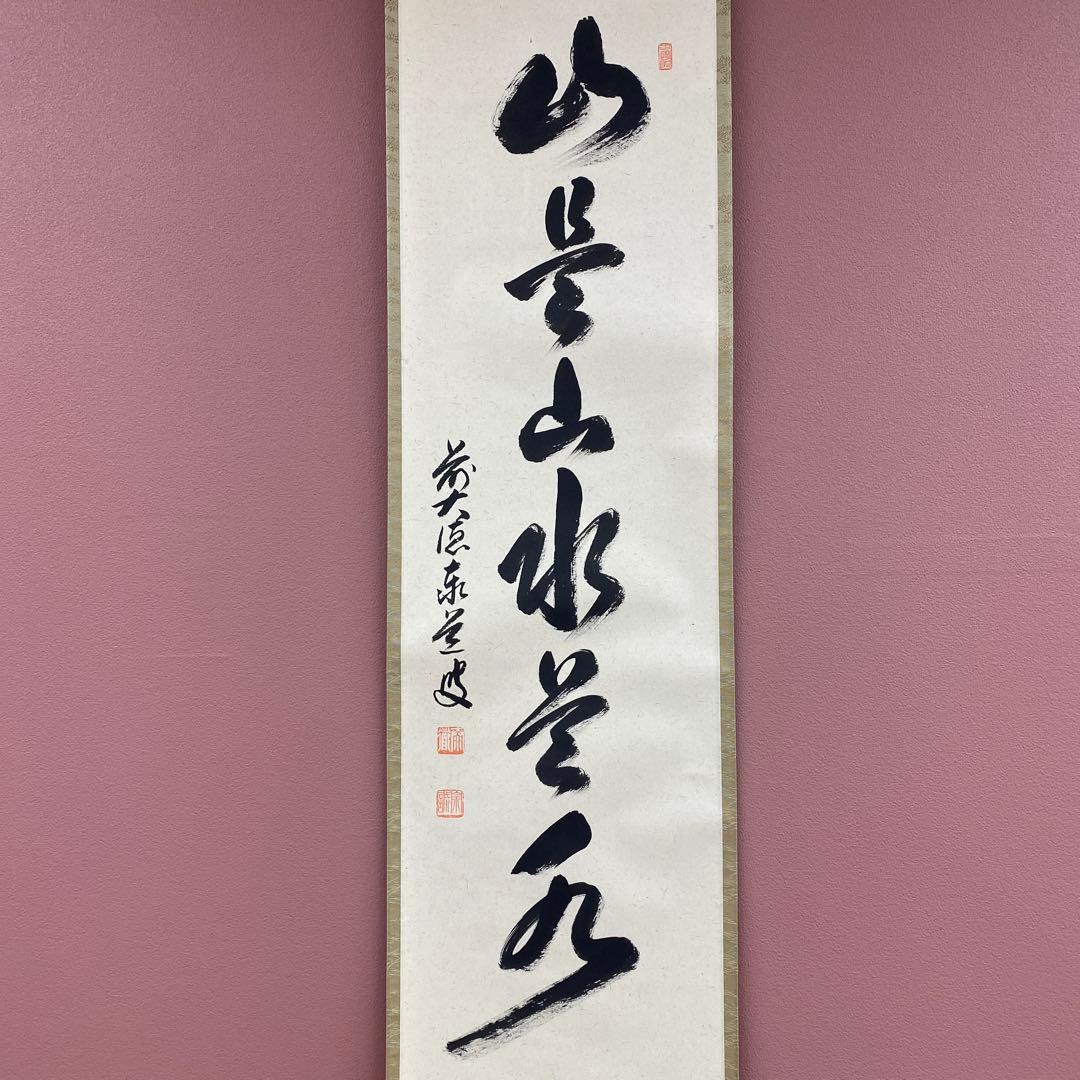 山是山水是水
前大徳東道叟